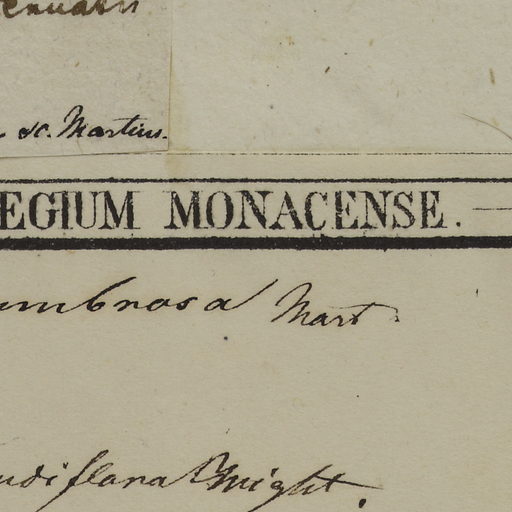 enuatii
sc. Martius.
EGIUM MONACENSE.
umbrosa Mart.
udiflora Wight.